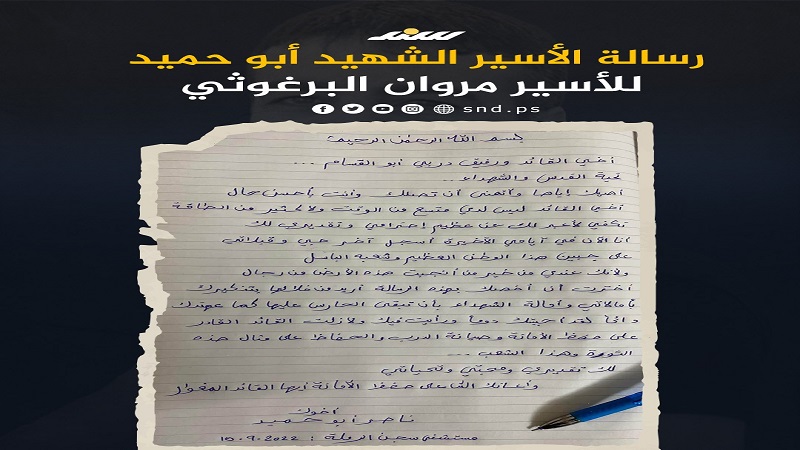 سند
رسالة الأسير الشهيد أبو حميد
للأسير مروان البرغوثي
snd.ps
بسم الله الرحمن الرحيم
أخي القائد ورفيق دربي أبو القسام ...
تحية القدس والشهداء ...
أهديك إياها وأتمنى أن تصلك وأنت بأحسن حال
أخي القائد ليس لدي متسع من الوقت ولا الكثير من الطاقة
تكفي لأعبر لك عن عظيم احترامي وتقديري لك
أنا الآن في أيامي الأخيرة أسجل آخر حبي وقبلاتي
على جبين هذا الوطن العظيم وشعبه الباسل
ولأنك عندي من خير من أنجبت هذه الأرض من رجال
اخترت أن أخصك بهذه الرسالة أريد من خلالها بتذكيرك
بأماناتي وأمانة الشهداء بأن تبقى الحارس عليها كما عهدتك
دائماً لقد أحببتك دوماً ورأيت فيك ولازلت القائد القادر
على حفظ الأمانة وصيانة الدرب والحفاظ على نضال هذه
الثورة وهذا الشعب ...
لك تقديري ومحبتي وتحياتي
الأمانة أيها القائد المغوار
أخوك
ناصر أبو حميد
مستشفى سجن الرملة : 10.9.2022